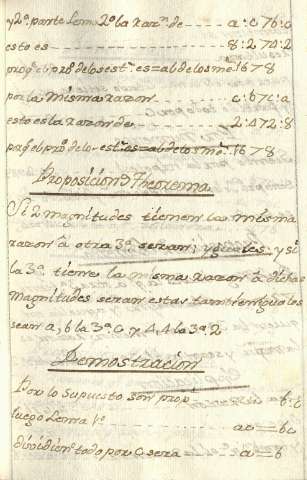 y 2ª parte Lema 2º la razn de a:c 7 6:a
esto es 8:2 7 4:2
prqe el pro de los estes es = al de los mos 16 7 8
por la misma razon c:b 7 c:a
esto es la razon de 2:4 7 2:8
prqe el pro de los estes es = al de los mos 16 7 8
Proposicion 9 Theorema
Si 2 magnitudes tienen la misma
razon à otra 3ª seran yguales; y si
la 3ª tiene la misma razon à dichas
magnitudes seran estas tambien yguales
sean a, b la 3ª c y 4, 4 la 3ª 2
Demostracion
Por lo supuesto son prop
luego Lema 1º ac = bc
dividiendo todo por c sera a = b